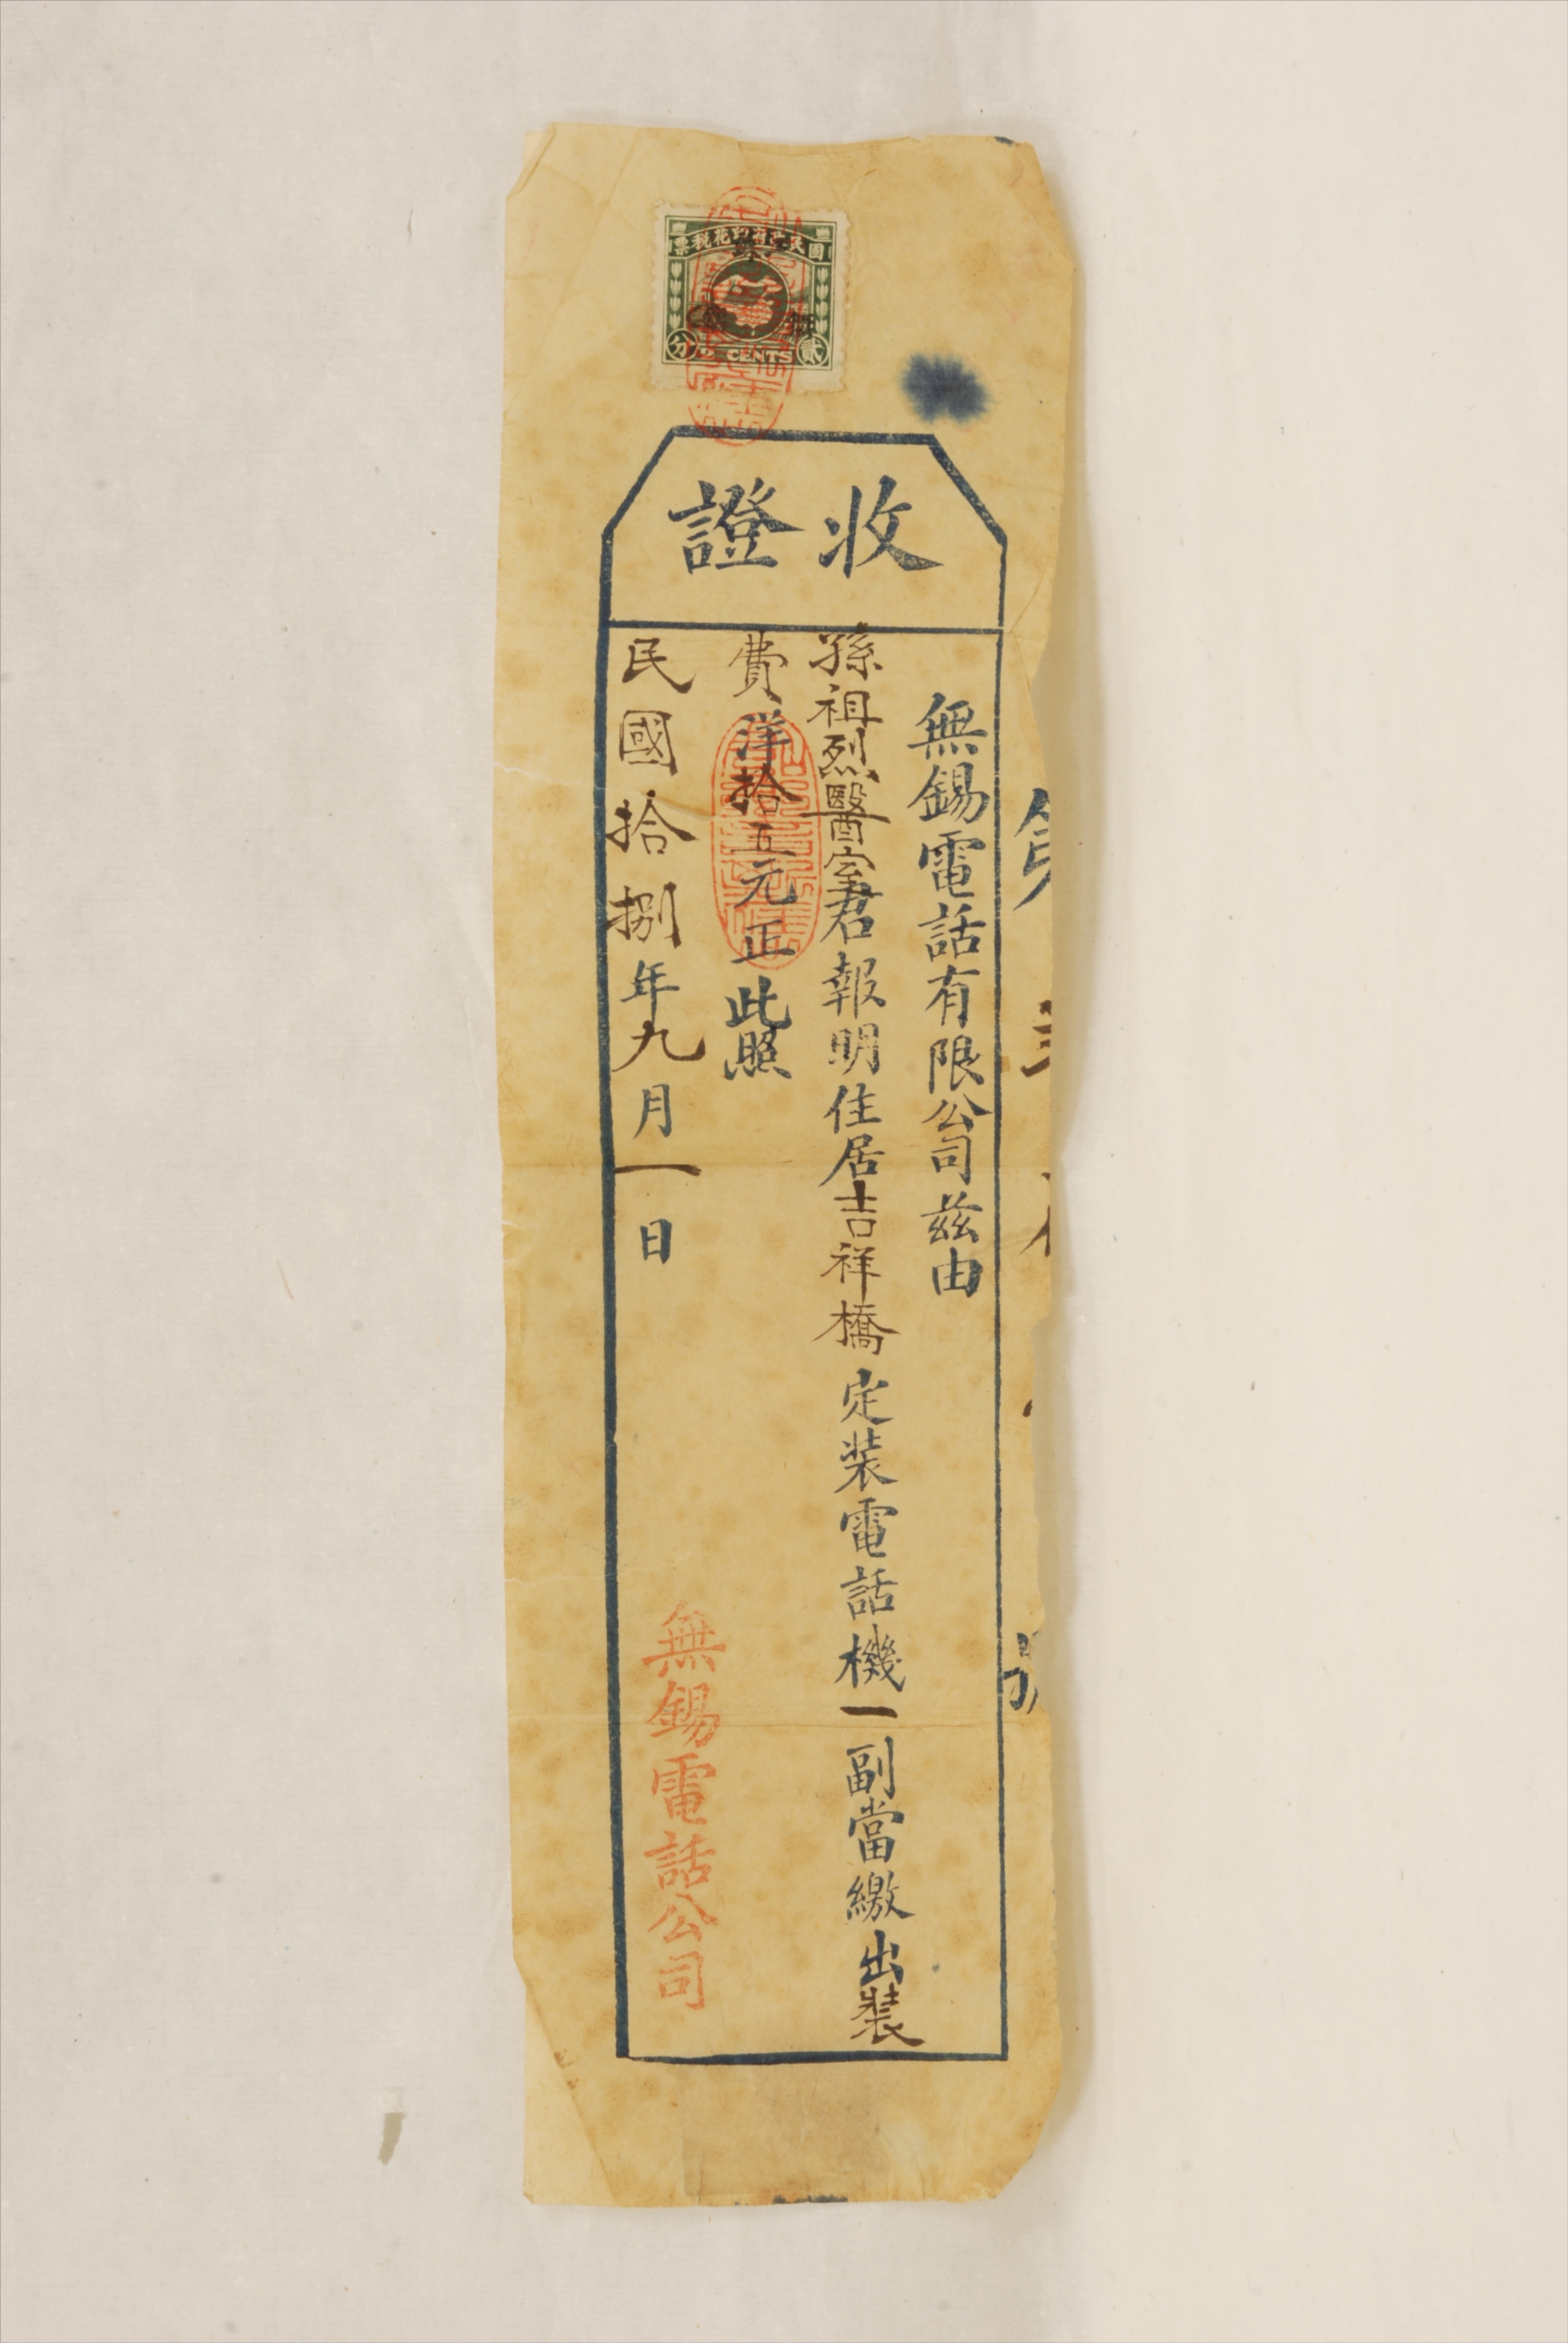 國民政府印花稅票
蘇
錫
貳 2 CENTS 分
收證
無錫電話有限公司茲由
孫祖烈醫室君報明住居吉祥橋定裝電話機一副當繳出裝
費洋拾五元正此照
民國拾捌年九月一日
無錫電話公司